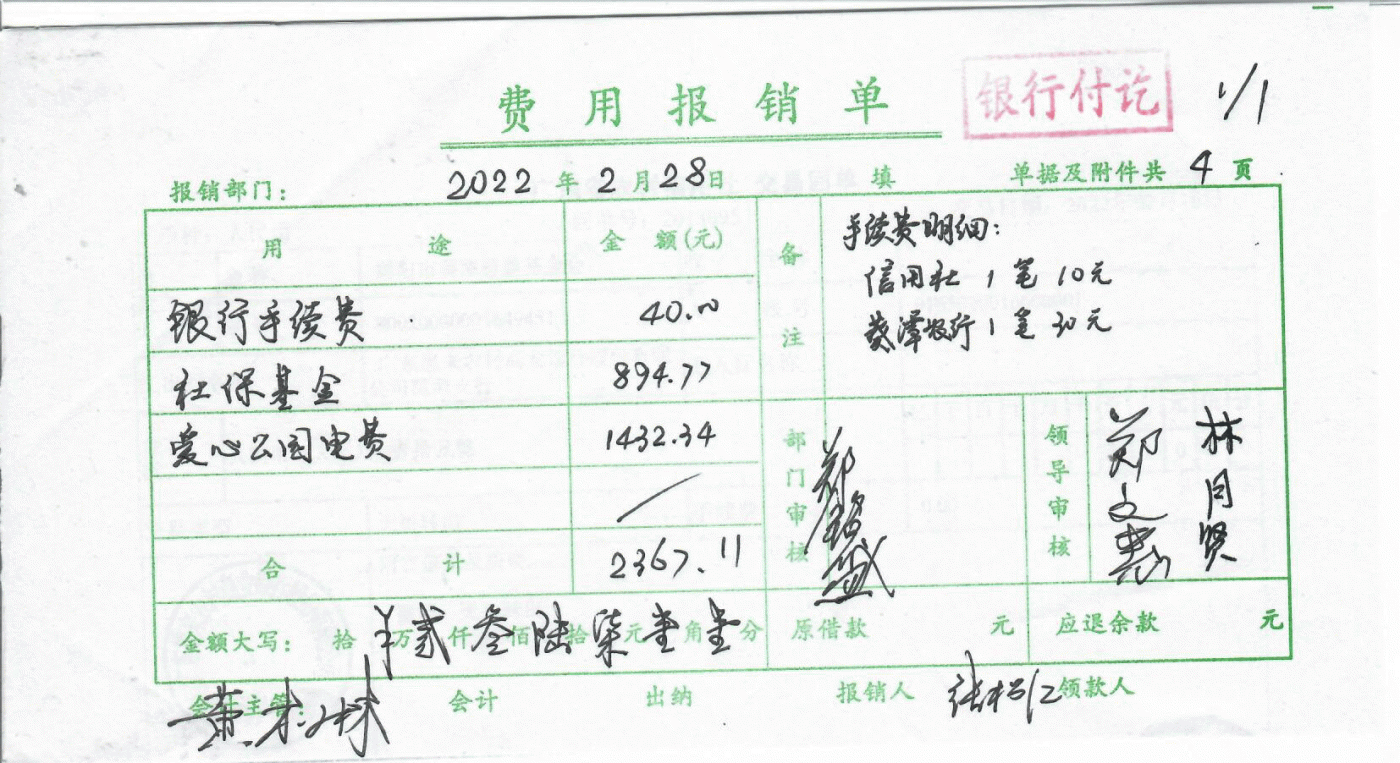 费用报销单
银行付讫
1/1
报销部门: 2022年2月28日 填 单据及附件共 4 页
用途 金额(元) 备注
手续费明细:
信用社 1笔 10元
1笔 30元
银行手续费 40.00
社保基金 894.77
爱心公园电费 1432.34
合计 2367.11
部门审核 郑铭盛
领导审核 郑文惠 林月贤
金额大写: 拾 ¥万贰仟叁佰陆拾柒元壹角壹分 原借款 元 应退余款 元
会计主管: 黄 会计 出纳 报销人 张 领款人